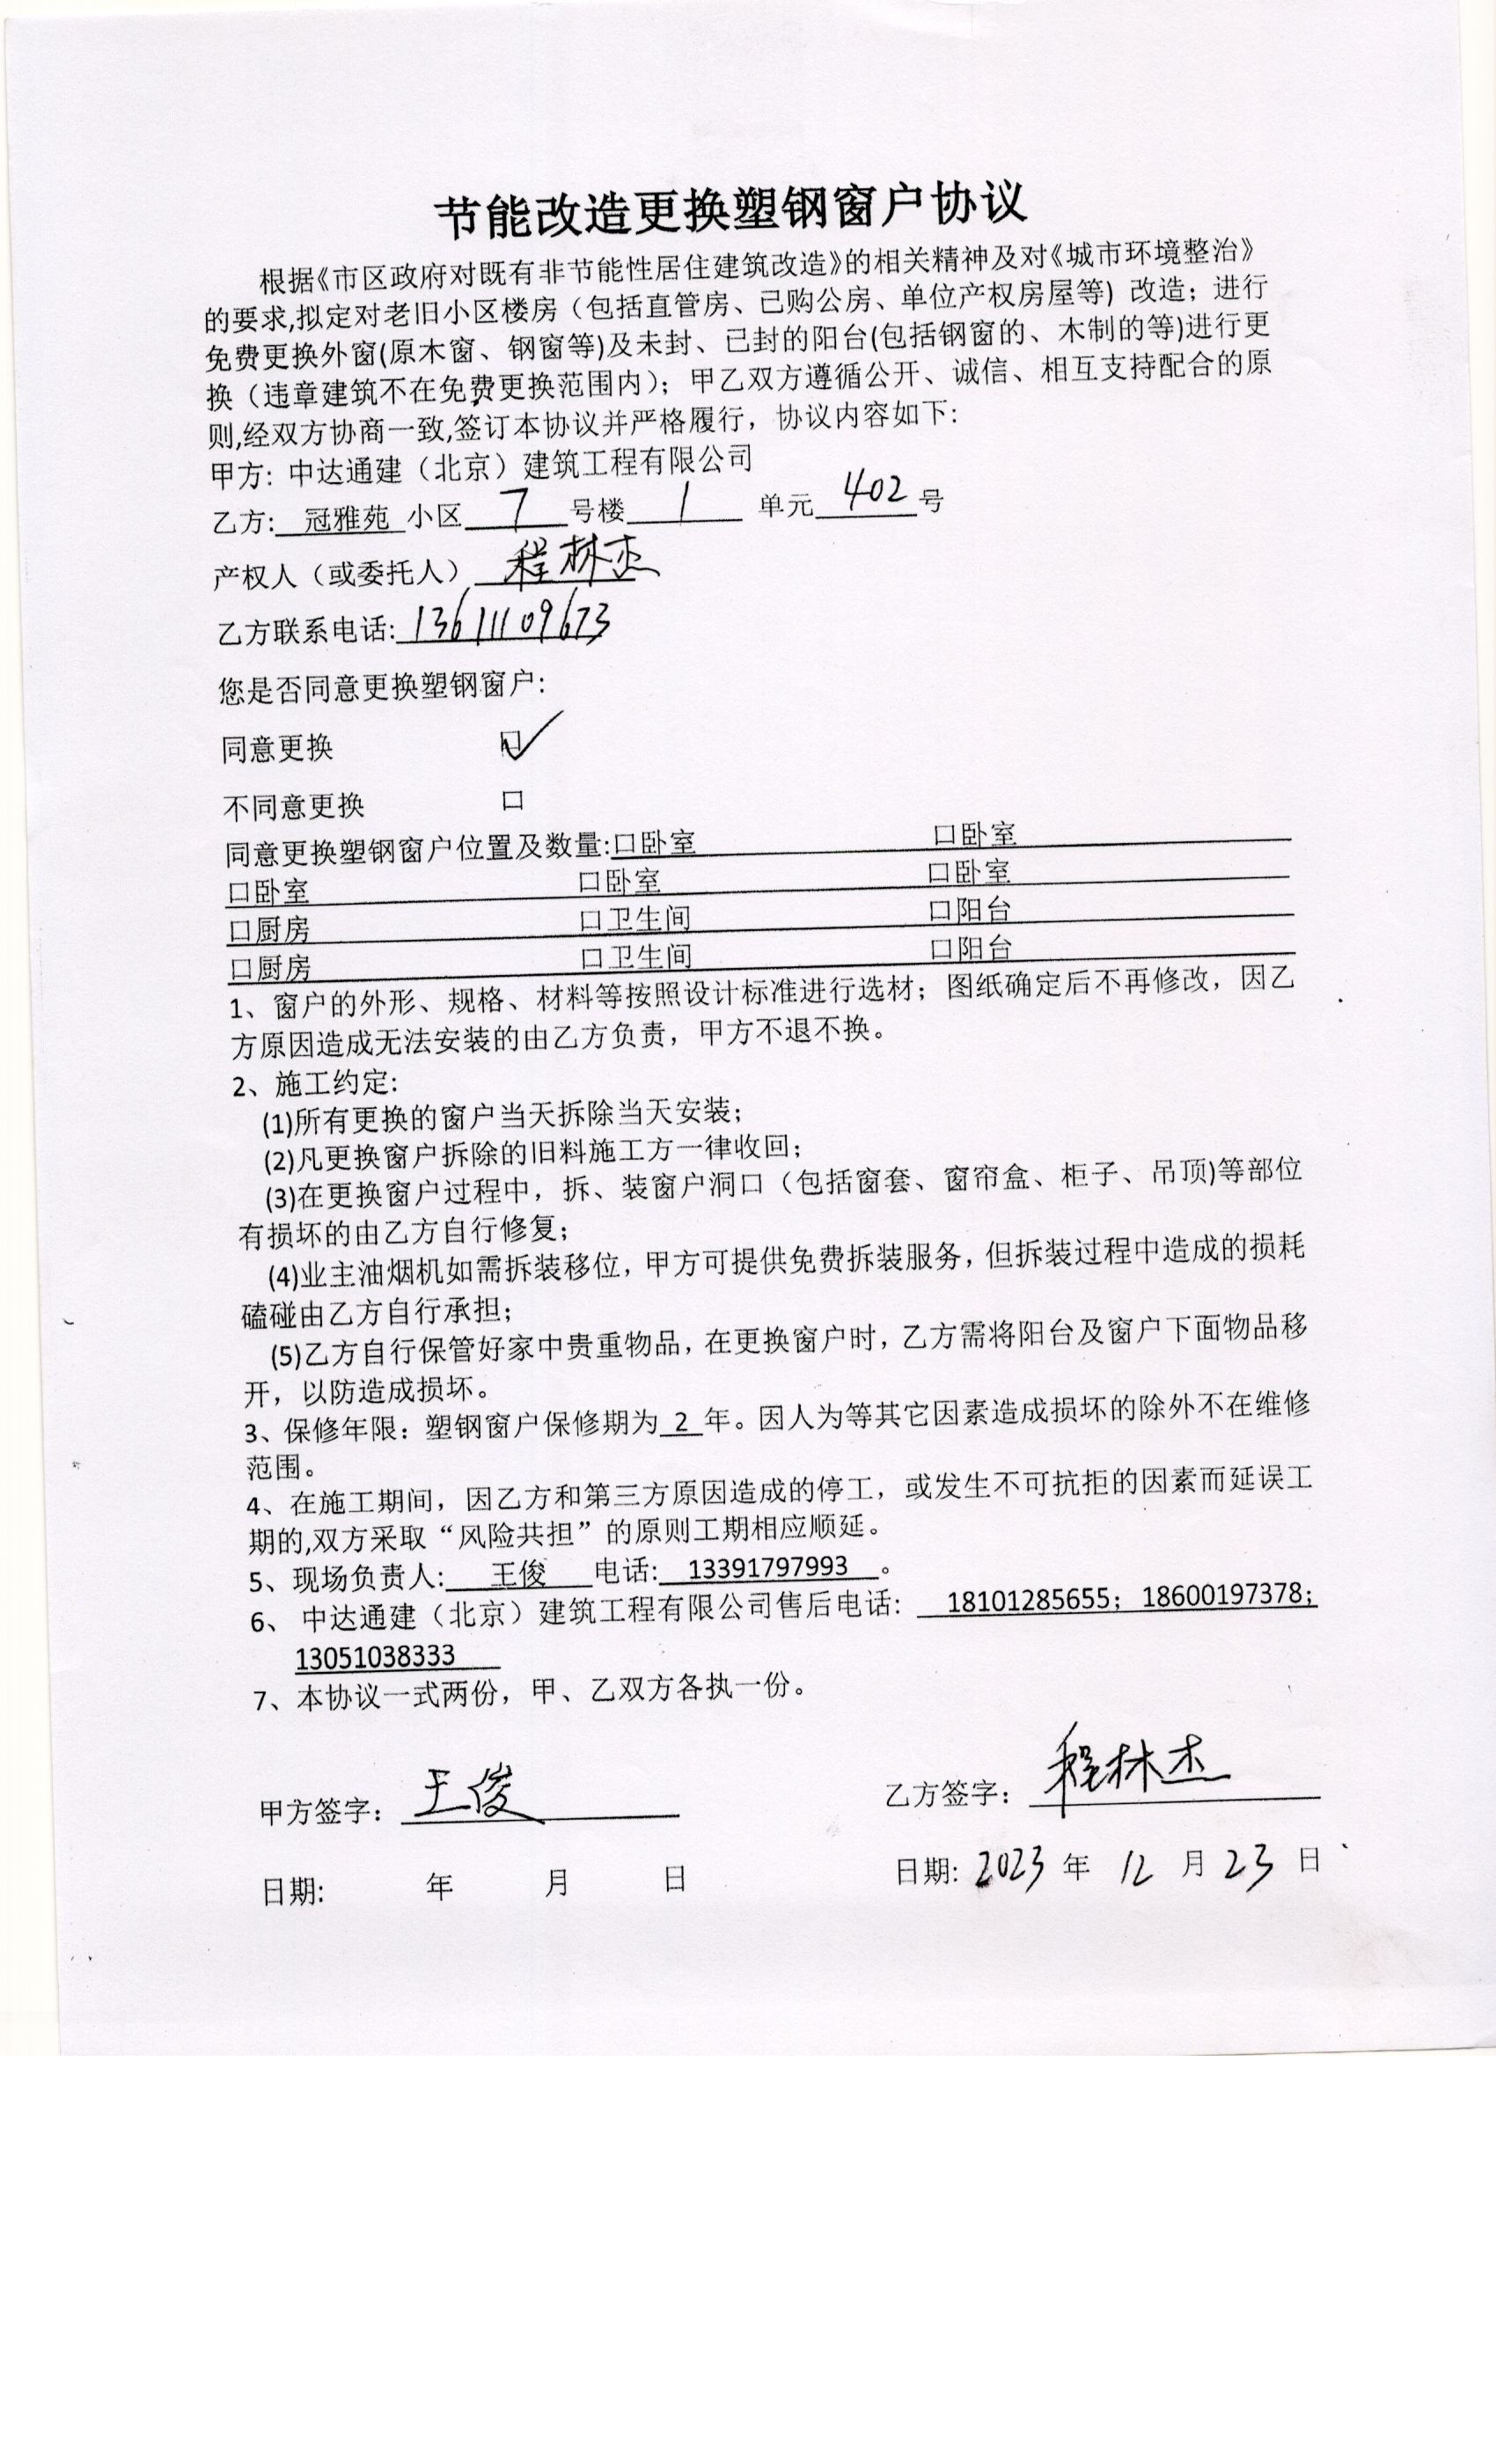 节能改造更换塑钢窗户协议
根据《市区政府对既有非节能性居住建筑改造》的相关精神及对《城市环境整治》
的要求,拟定对老旧小区楼房（包括直管房、已购公房、单位产权房屋等）改造；进行
免费更换外窗(原木窗、钢窗等)及未封、已封的阳台(包括钢窗的、木制的等)进行更
换（违章建筑不在免费更换范围内）；甲乙双方遵循公开、诚信、相互支持配合的原
则,经双方协商一致,签订本协议并严格履行，协议内容如下：
甲方：中达通建（北京）建筑工程有限公司
乙方： 冠雅苑 小区 7 号楼 1 单元 402 号
产权人（或委托人） 程林杰
乙方联系电话: 13611109673
您是否同意更换塑钢窗户：
同意更换 ☑
不同意更换 口
同意更换塑钢窗户位置及数量:口卧室 口卧室
口卧室 口卧室 口卧室
口厨房 口卫生间 口阳台
口厨房 口卫生间 口阳台
1、窗户的外形、规格、材料等按照设计标准进行选材；图纸确定后不再修改，因乙
方原因造成无法安装的由乙方负责，甲方不退不换。
2、施工约定:
(1)所有更换的窗户当天拆除当天安装；
(2)凡更换窗户拆除的旧料施工方一律收回；
(3)在更换窗户过程中，拆、装窗户洞口（包括窗套、窗帘盒、柜子、吊顶)等部位
有损坏的由乙方自行修复；
(4)业主油烟机如需拆装移位，甲方可提供免费拆装服务，但拆装过程中造成的损耗
磕碰由乙方自行承担；
(5)乙方自行保管好家中贵重物品，在更换窗户时，乙方需将阳台及窗户下面物品移
开，以防造成损坏。
3、保修年限：塑钢窗户保修期为 2 年。因人为等其它因素造成损坏的除外不在维修
范围。
4、在施工期间，因乙方和第三方原因造成的停工，或发生不可抗拒的因素而延误工
期的,双方采取“风险共担”的原则工期相应顺延。
5、现场负责人: 王俊 电话: 13391797993 。
6、中达通建（北京）建筑工程有限公司售后电话: 18101285655；18600197378；
13051038333
7、本协议一式两份，甲、乙双方各执一份。
甲方签字： 王俊 乙方签字： 程林杰
日期: 年 月 日 日期: 2023 年 12 月 23 日